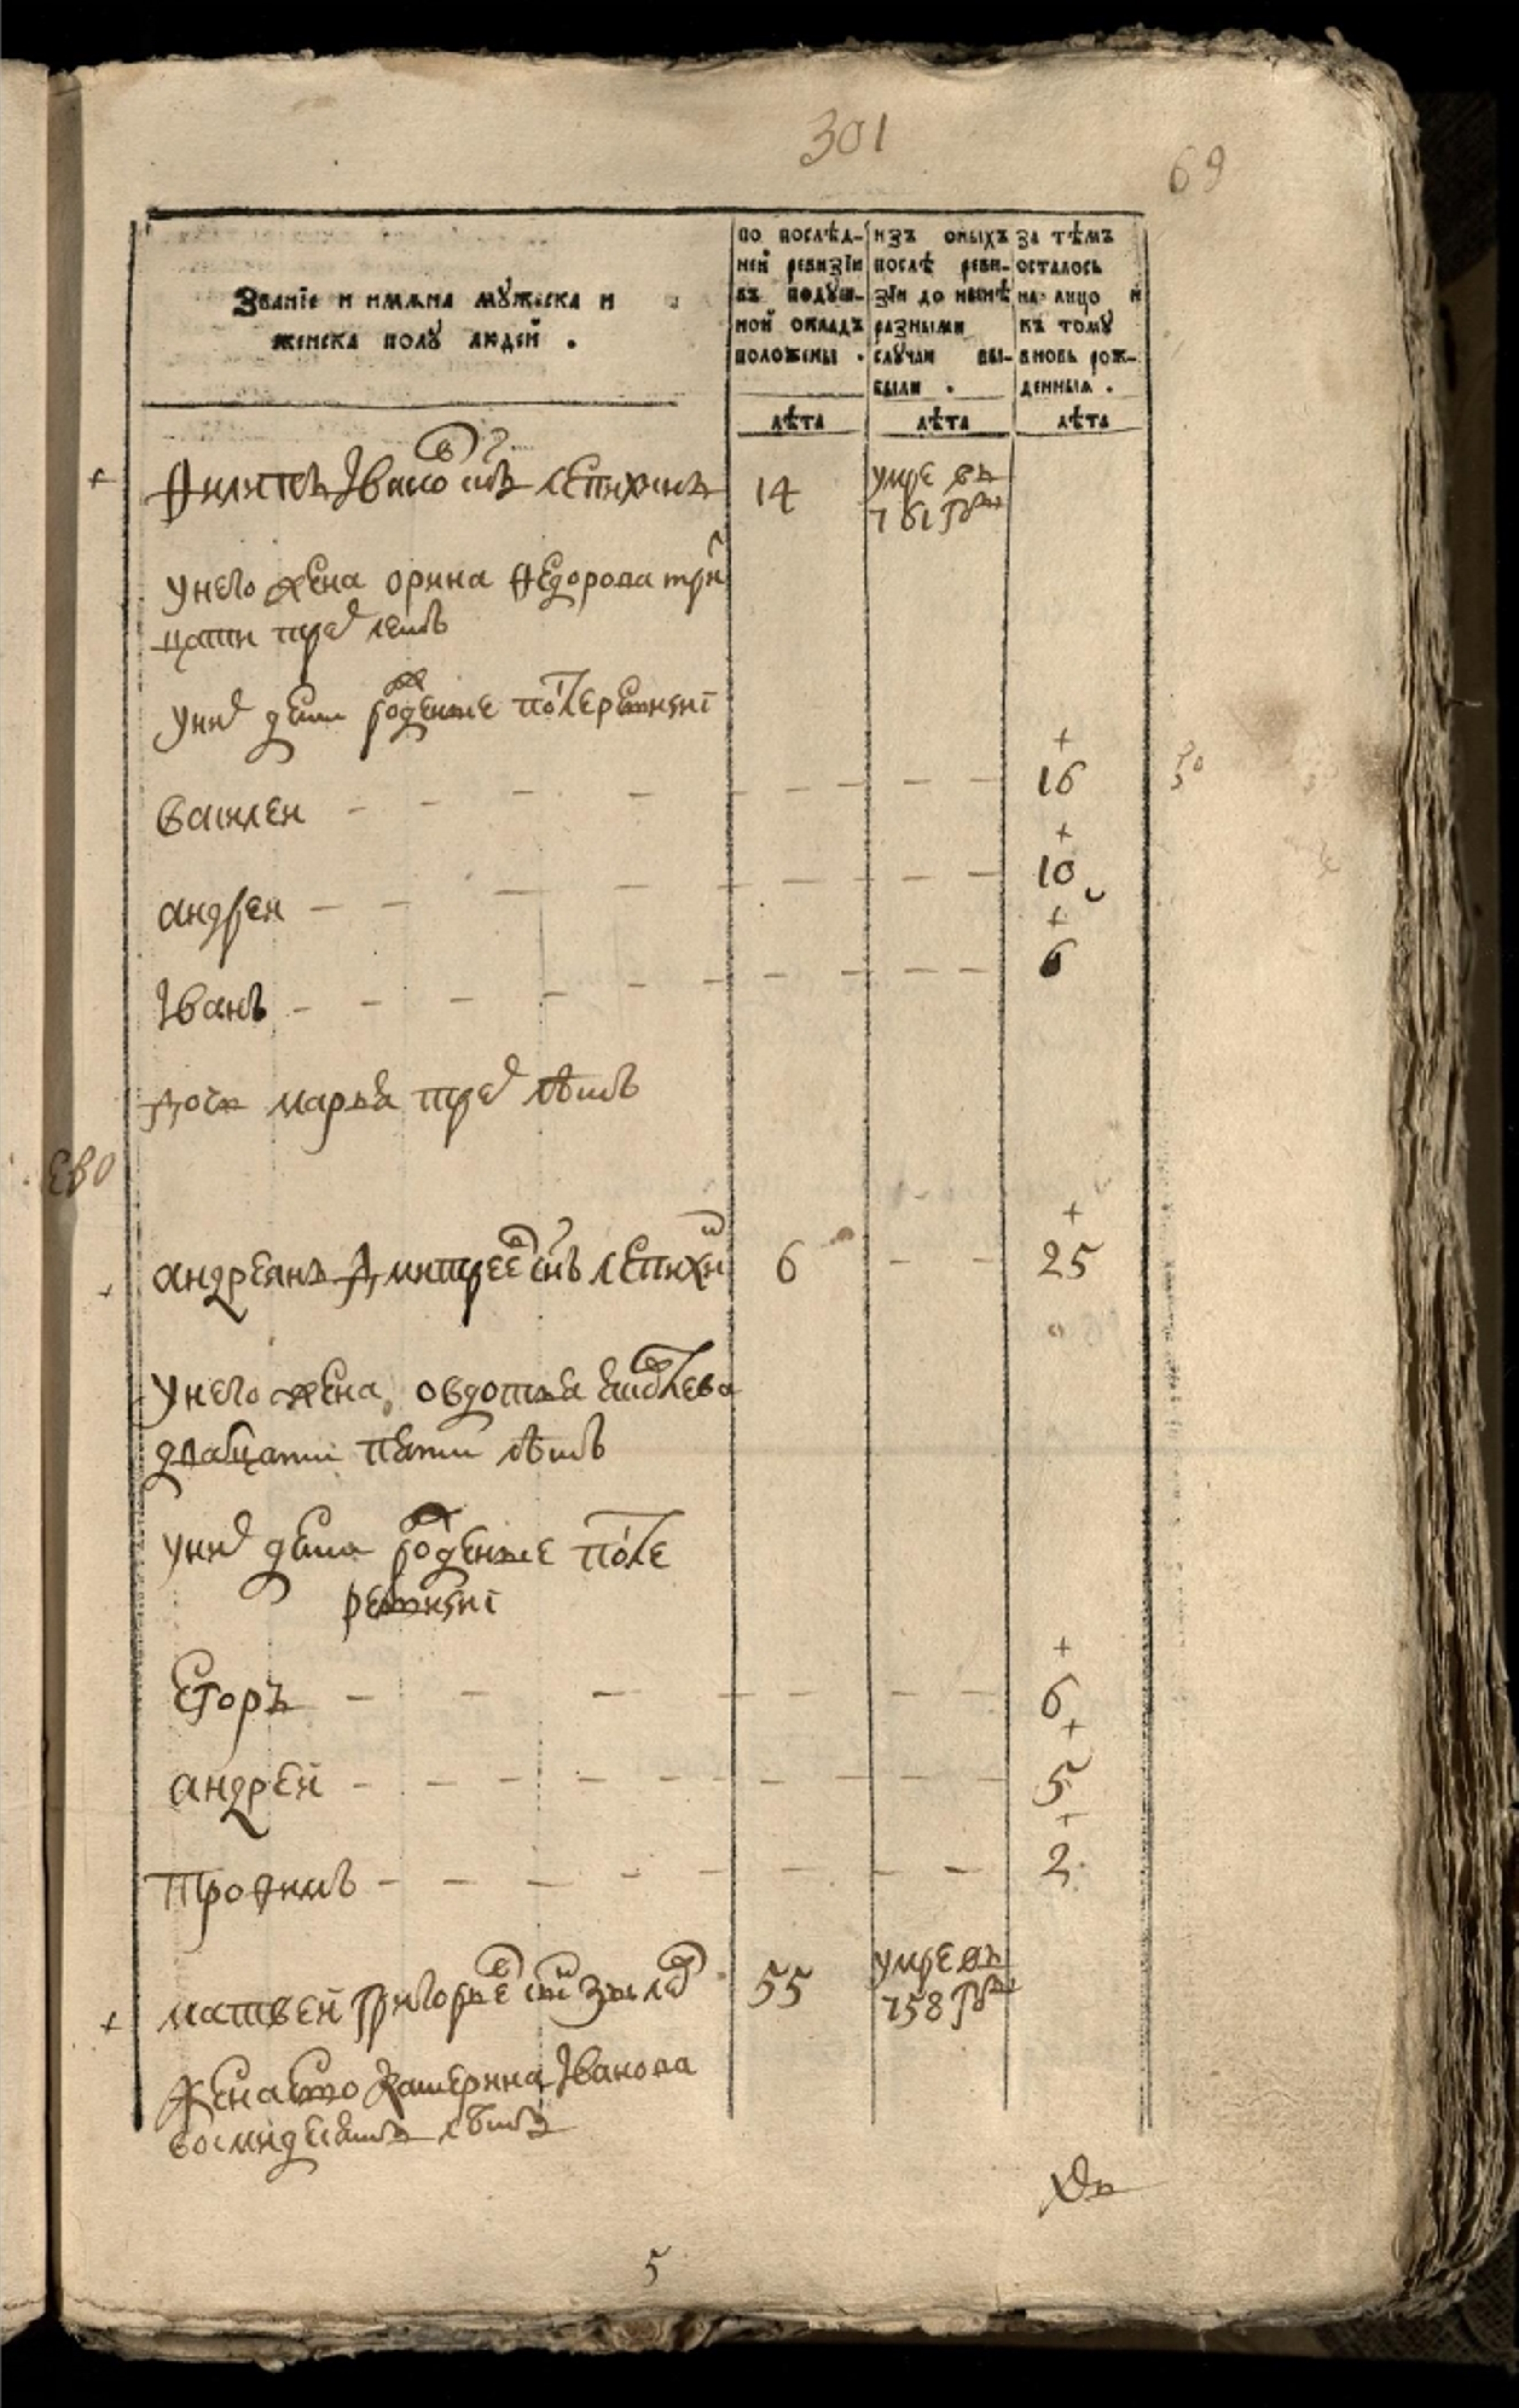 301
69
Званїе и имѧна мꙋжеска и
женска полꙋ людей .
по послѣд-
ней ревизїи
въ подꙋш-
ной окладъ
положены .
изъ оныхъ
послѣ реви-
зїи до нынѣ
разными
слꙋчаи вы-
были .
за тѣмъ
осталось
на лицо и
къ томꙋ
вновь рож-
денныѧ .
лѣта
лѣта
лѣта
Филипъ Iвановъ снъ лепихинъ 14 умре въ
761 году
унего жена орина Федорова три
цати трех летъ
уних дети рожденные после ревизиi
василеи 16
андреи 10
Iванъ 6
дочь марья трех лѣтъ
ево
андреянъ Дмитреевъ снъ лепихин 6 25
унего жена овдотья
дватцати пяти лѣтъ
уних дети рожденные после
ревизиi
Егоръ 6
андрей 5
трофимъ 2
матвей григорьев снъ 55 умре въ
758 году
жена ево катерина Iванова
восмидесятъ лѣтъ
5